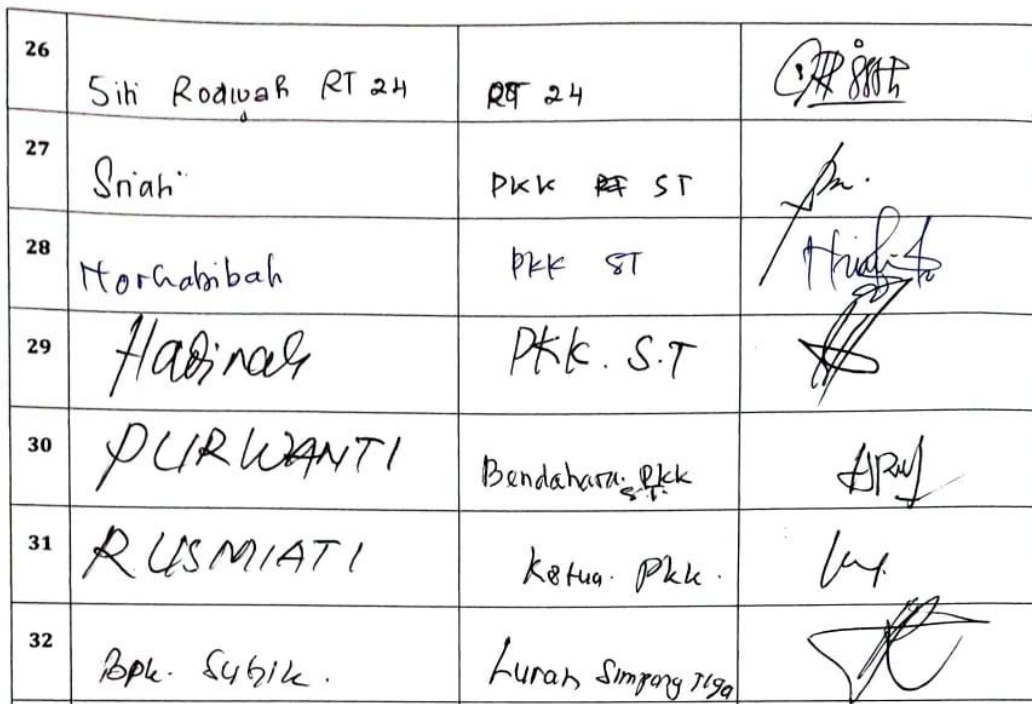 26 Siti Rodiyah RT 24 RT 24
27 Sriati PKK ST
28 Norhabibah PKK ST
29 Habinah PKK. S.T
30 PURWANTI Bendahara. PKK
S.T.
31 RUSMIATI Ketua. PKK.
32 Bpk. Subik. Lurah Simpang Tiga